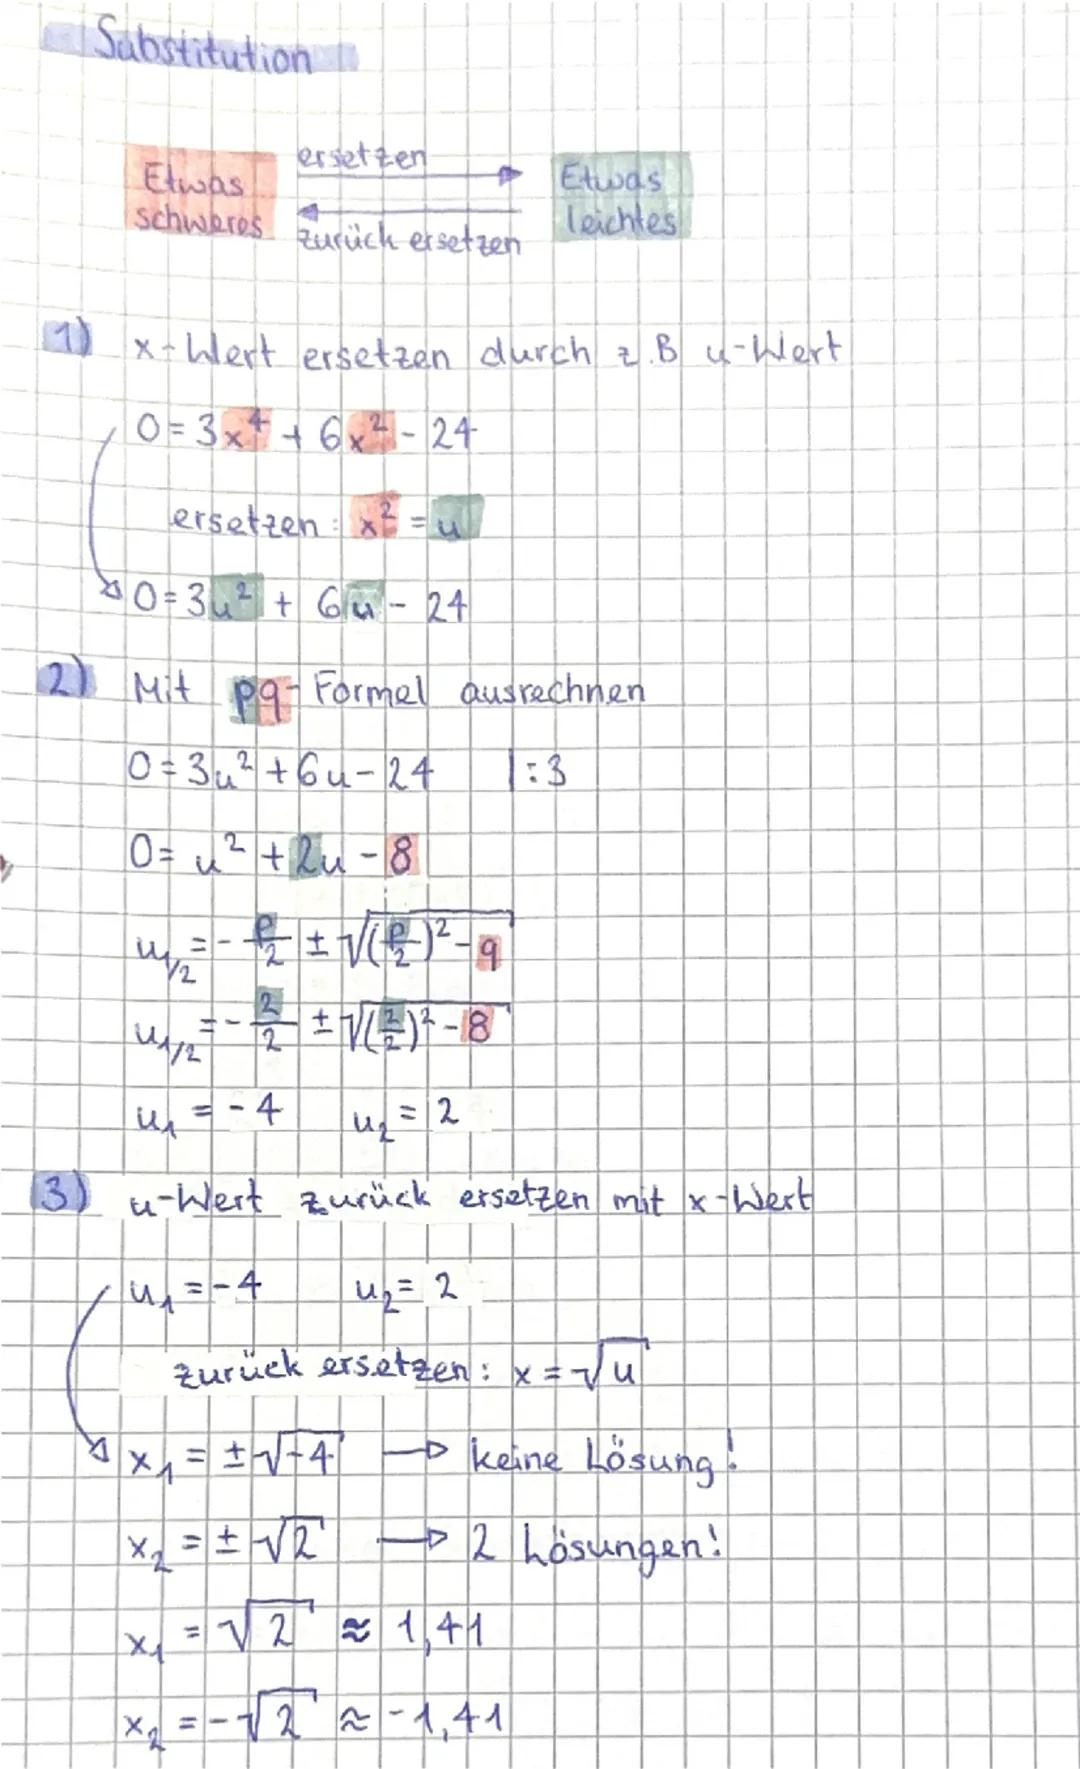 Substitution
Etwas schweres
ersetzen
zurück ersetzen
Etwas leichtes
1) x-Wert ersetzen durch z.B u-Wert
0 = 3x⁴ + 6x² - 24
ersetzen: x² = u
0 = 3u² + 6u - 24
2) Mit pq-Formel ausrechnen
0 = 3u² + 6u - 24 |:3
0 = u² + 2u - 8
u₁/₂ = - p/2 ± √((p/2)² - q)
u₁/₂ = - 2/2 ± √((2/2)² - 8)
u₁ = -4 u₂ = 2
3) u-Wert zurück ersetzen mit x-Wert
u₁ = -4 u₂ = 2
zurück ersetzen: x = √u
x₁ = ± √-4 → keine Lösung!
x₂ = ± √2 → 2 Lösungen!
x₁ = √2 ≈ 1,41
x₂ = -√2 ≈ -1,41